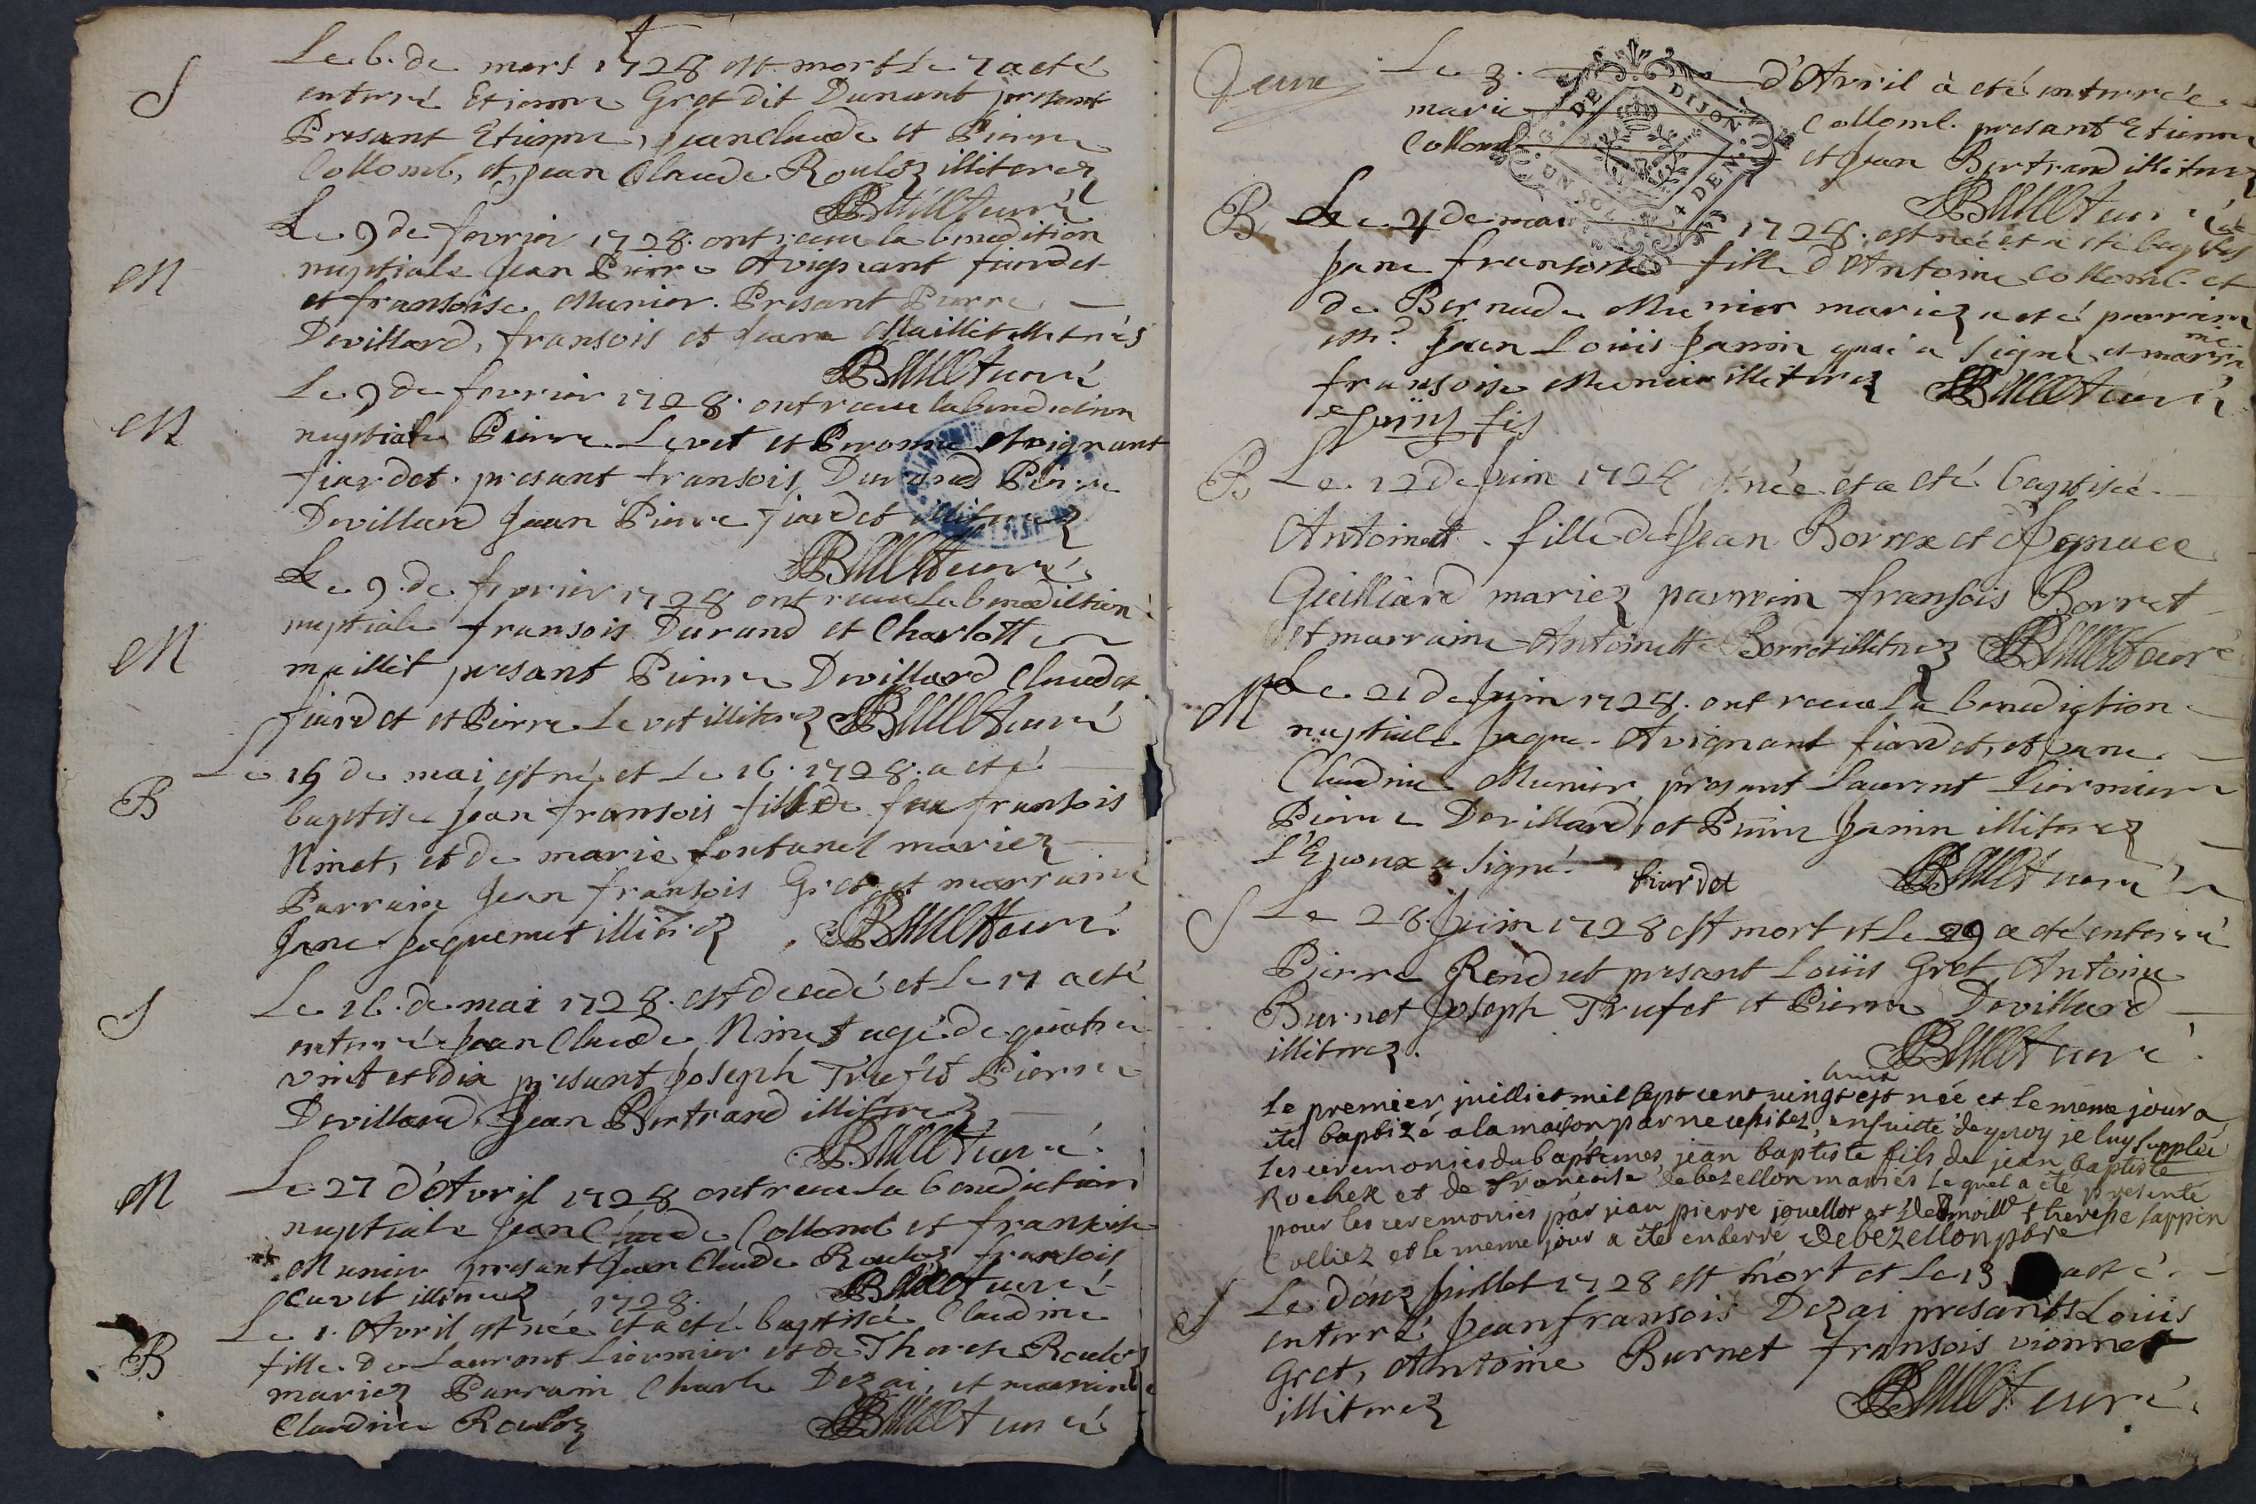 S
Le 6. de mars 1728 est mort Le 7 a eté
enterré Etienne Gret dit Dunant presant
Presant Etienne, Jean claude et Pierre
Collomb, et Jean Claude Rouloz illiterez
curé
M
Le 9 de fevrier 1728. ont receu la benedition
nuptiale Jean Pierre Avignant fiardet
et fransoise Munier. Presant Pierre
Devillard, fransois et Jean Maillit illiterés
curé
M
Le 9 de fevrier 1728. ont receu la benediction
nuptiale Pierre Levet et Peronne Avignant
fiardet. presant fransois Durand Pierre
Devillard Jean Pierre fiardet illiterez
curé
M
Le 9. de fevrier 1728 ont receu la benediction
nuptiale fransois Durand et Charlotte
maillit presant Pierre Devillard Claude
fiardet et Pierre Levet illiterez curé
B
Le 15 de mai est né et Le 16. 1728. a eté
baptisé Jean fransois fils de feu fransois
Ninet, et de marie fontanel mariez
Parrain Jean fransois Gret et marraine
Jane Jaquemet illiterez curé
S
Le 16. de mai 1728. est decedé et Le 17 a eté
enterré Jean Claude Ninet agé de quatre
vint et dix presant Joseph Trufet Pierre
Devillard Jean Bertrand illiterez
curé
M
Le 27 d'Avril 1728 ont receu La benediction
nuptiale Jean Claude Collomb et fransoise
Munier presant Jean Claude Rouloz fransois
illiterez curé
1728.
B
Le 1. Avril est née et a eté baptisée Claudine
fille De Laurent Liermier et de Therese Rouloz
mariez Parrain Charle Dezai, et marraine
Claudine Rouloz curé
Deux
Le 3. d'Avril à eté enterrée
marie Collomb. presant Etienne
Collomb et Jean Bertrand illiterez
DE DIJON
UN SOL 4 DEN.
curé
B
Le 4 de mai 1728. est née et a eté baptisée
Jane fransoise fille d'Antoine Collomb. et
de Bernade Munier mariez a eté parrain
Jean Louis Janin quai a signé et marraine
fransoise Munier illiterez curé
B
Le 12 de Juin 1728 est née et a eté baptisée
Antoinett fille de Jean Borrex et d'
Guilliard mariez parrain fransois Borret
et marraine Antoinette Borret illiterez curé
M
Le 21 de Juin 1728. ont receu La benediction
nuptiale Jaque Avignant fiardet, et Jane
Claudine Munier, presant Laurent Liermier
Pierre Devillard, et Pierre Janin illiterez
L'Epoux a signé. fiardet curé
S
Le 28. Juin 1728 est mort et Le 29 a eté enterré
Pierre Rendut presant Louis Gret, Antoine
Burnet Joseph Trufet et Pierre Devillard
illiterez. curé
huit
le premier juilliet mil sept cent vingt est née et le meme jour a
eté baptizé a la maison par necessitez, ensuite dequoy je luy supplée
les ceremonies du baptemes, jean baptiste fils de jean baptiste
Rochex et de francoise debezellon mariés le quel a eté presenté
pour les ceremonies par jean pierre jouellot et Dedmoille therese sappin
Colliez et le meme jour a eté enterré Debezellon pbre
S
Le douz Juillet 1728 est mort et Le 13 a eté
enterré Jean fransois Dezai presants Louis
Gret, Antoine Burnet fransois vionnet
illiterez curé